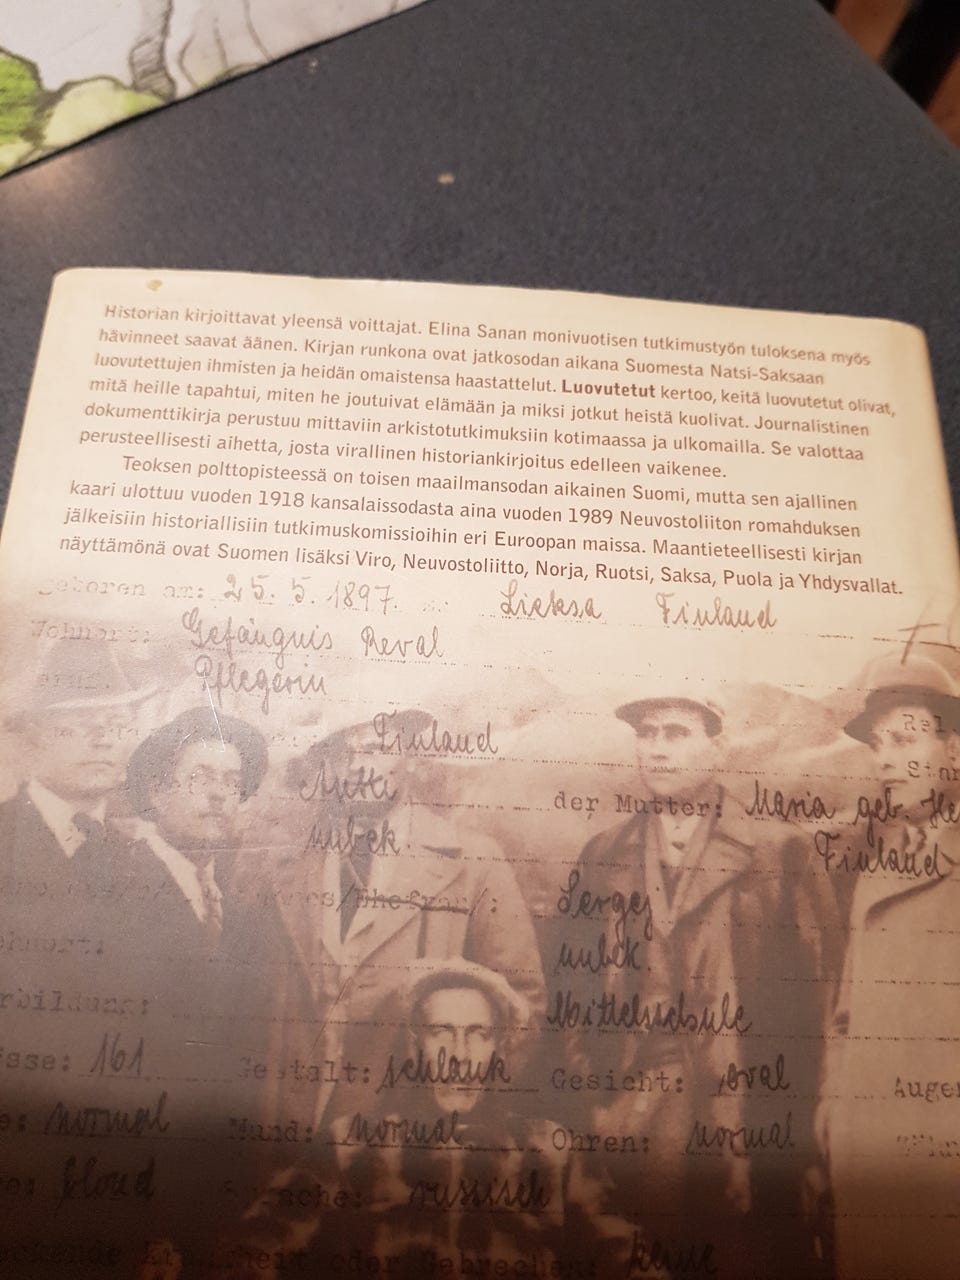 Historian kirjoittavat yleensä voittajat. Elina Sanan monivuotisen tutkimustyön tuloksena myös
hävinneet saavat äänen. Kirjan runkona ovat jatkosodan aikana Suomesta Natsi-Saksaan
luovutettujen ihmisten ja heidän omaistensa haastattelut. Luovutetut kertoo, keitä luovutetut olivat,
mitä heille tapahtui, miten he joutuivat elämään ja miksi jotkut heistä kuolivat. Journalistinen
dokumenttikirja perustuu mittaviin arkistotutkimuksiin kotimaassa ja ulkomailla. Se valottaa
perusteellisesti aihetta, josta virallinen historiankirjoitus edelleen vaikenee.
Teoksen polttopisteessä on toisen maailmansodan aikainen Suomi, mutta sen ajallinen
kaari ulottuu vuoden 1918 kansalaissodasta aina vuoden 1989 Neuvostoliiton romahduksen
jälkeisiin historiallisiin tutkimuskomissioihin eri Euroopan maissa. Maantieteellisesti kirjan
näyttämönä ovat Suomen lisäksi Viro, Neuvostoliitto, Norja, Ruotsi, Saksa, Puola ja Yhdysvallat.
geboren am: 25. 5. 1897. Lieksa Finland
Wohnort: Gefängnis Reval
Pflegerin
Finland Rel.
Antti der Mutter: Maria geb. He
unbek. Finland
/Ehefrau/: Sergej
unbek.
rbildung: Mittelschule
sse: 161 Gestalt: schlank Gesicht: oval Augen
normal Mund: normal Ohren: normal
blond Sprache: russisch
eckende Krankheit oder Gebrechen: keine